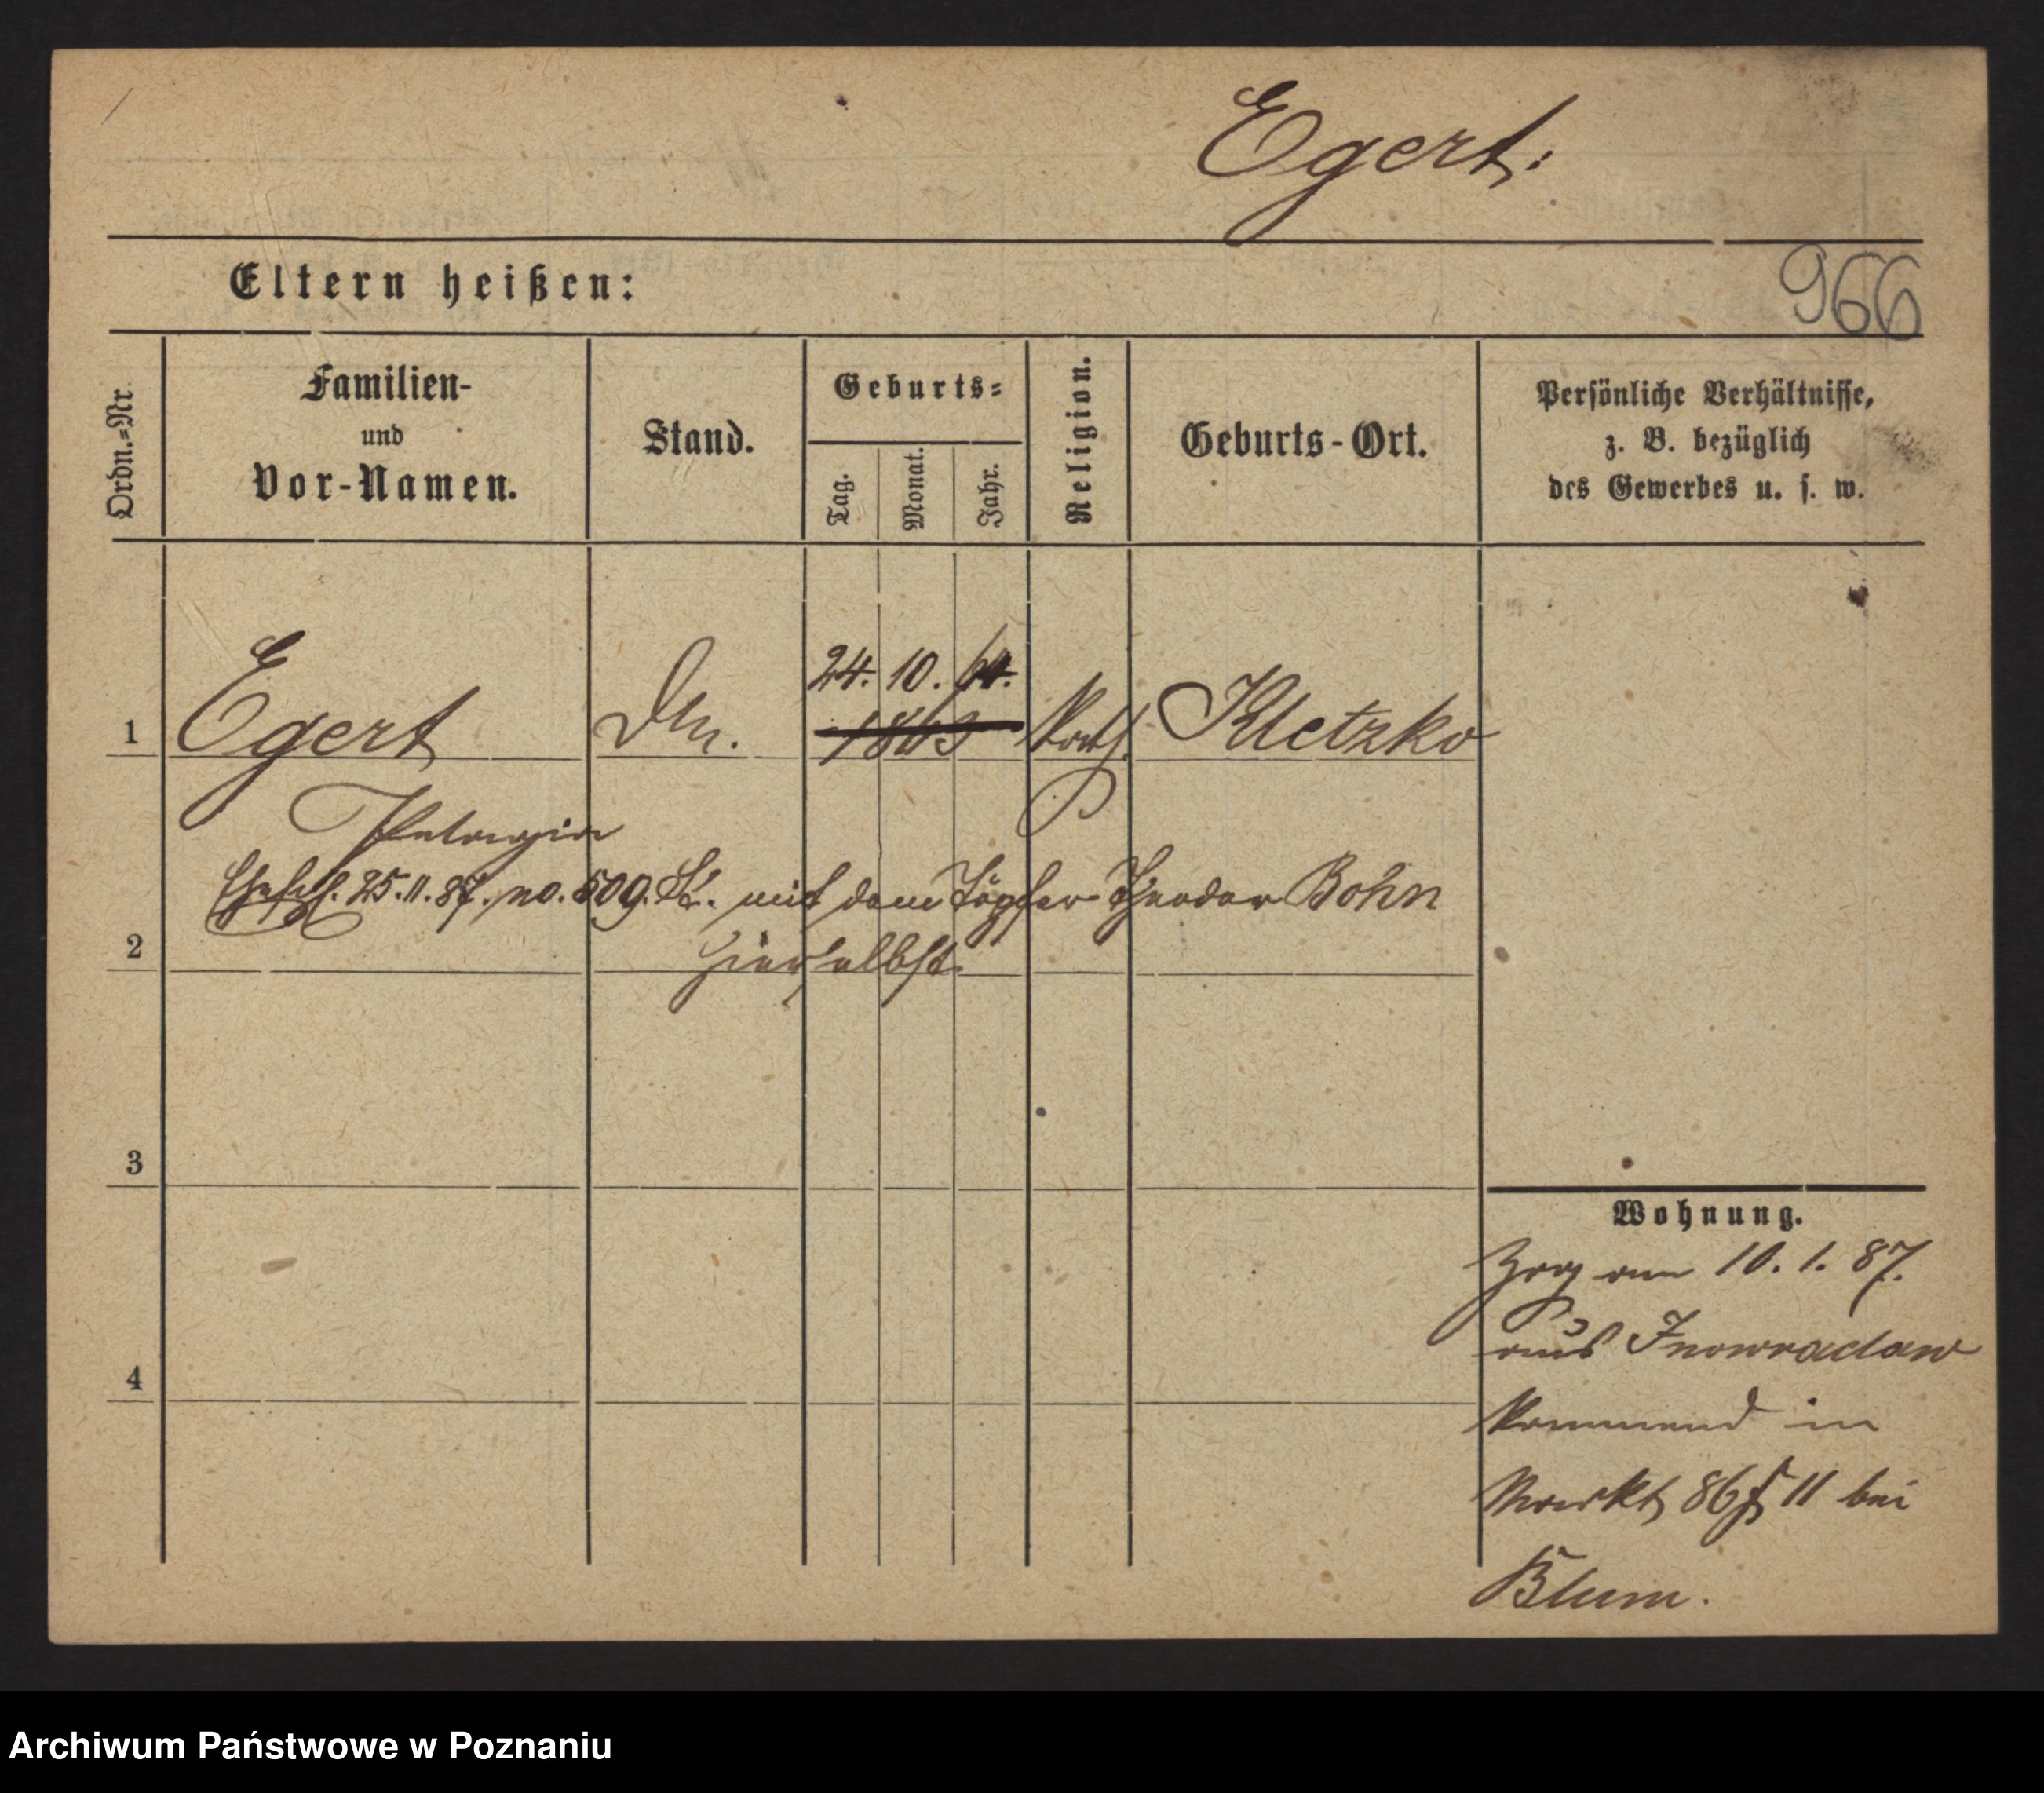 Egert.
Eltern heißen:
966
Ordn.=Nr.
Familien-
und
Vor-Namen.
Stand.
Geburts=
Tag.
Monat.
Jahr.
Religion.
Geburts-Ort.
Persönliche Verhältnisse,
z. B. bezüglich
des Gewerbes u. s. w.
24. 10. 64.
1 Egert 1863 Kath. Kletzko
Pelagia
Ehesch. 25.11.87. no. 509. St. mit dem Töpfer Theodor Bohn
2 hierselbst
3
4
Wohnung.
Zog am 10. 1. 87.
aus Inowraclaw
kommend in
Markt 86 II bei
Blum.
Archiwum Państwowe w Poznaniu